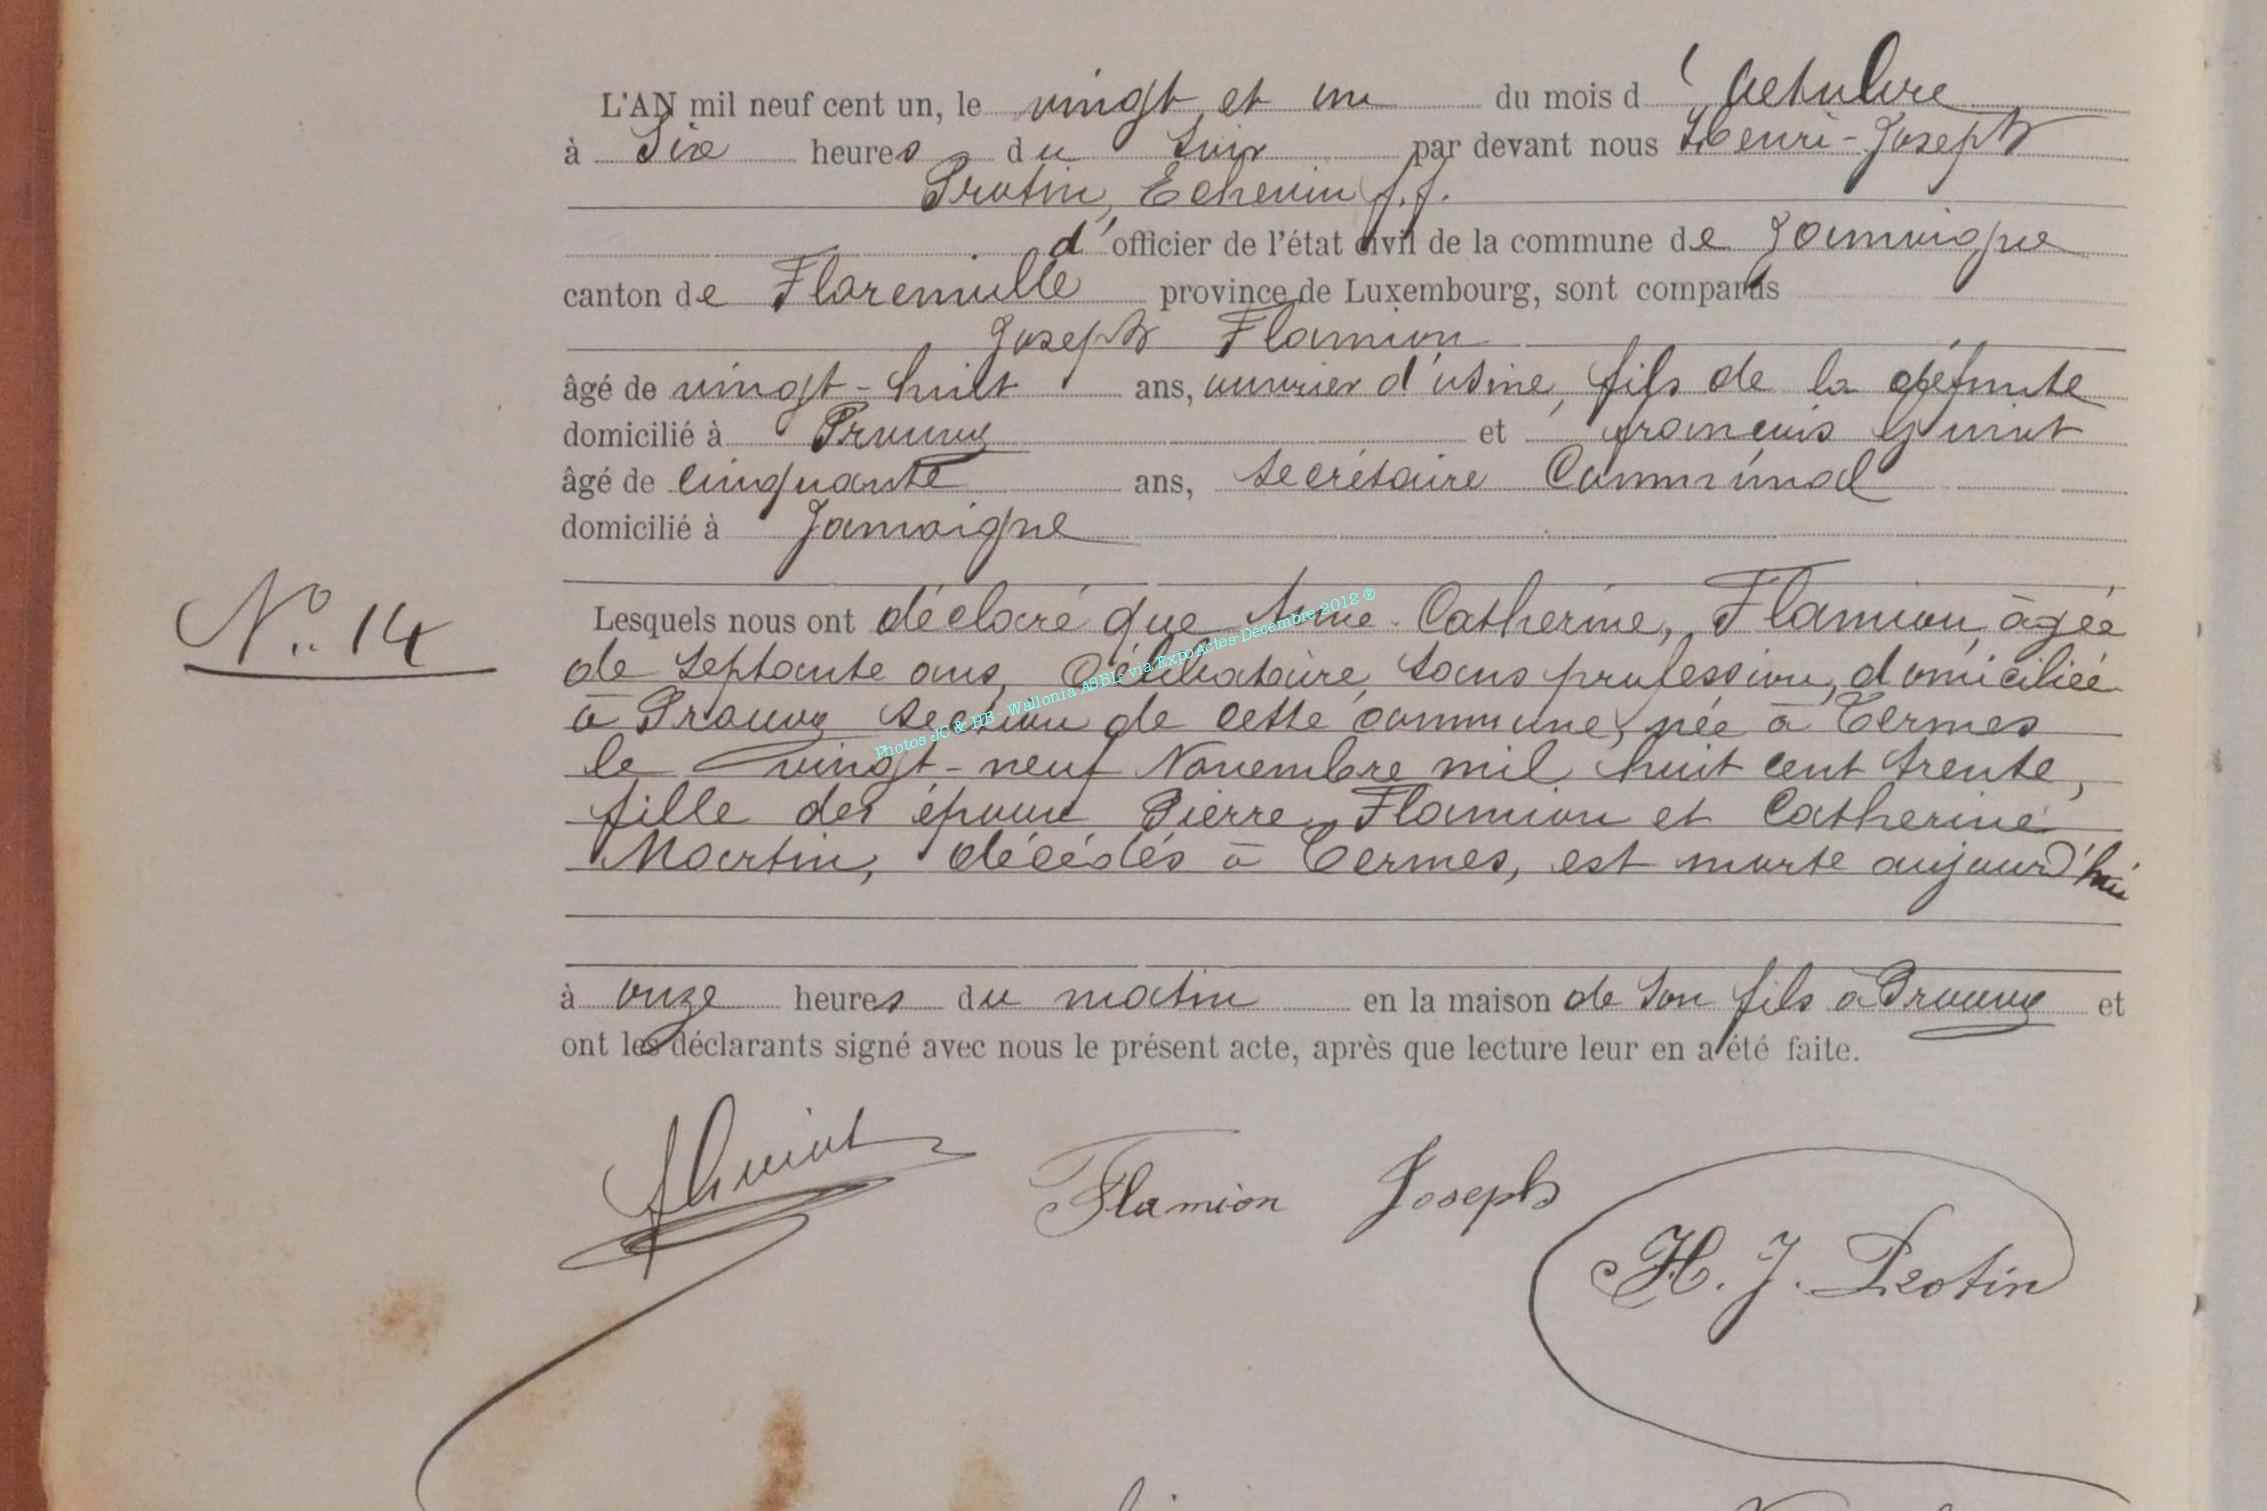 L'AN mil neuf cent un, le vingt et un du mois d'Octobre
à Six heures du Soir par devant nous Henri-Joseph
Protin, Echevin f.f.
d'officier de l'état civil de la commune de Jamoigne
canton de Florenville province de Luxembourg, sont comparus
Joseph Flamion
âgé de vingt-huit ans, ouvrier d'usine, fils de la défunte
domicilié à Prouvy et françois Guiot
âgé de cinquante ans, secrétaire Communal
domicilié à Jamoigne
N° 14
Lesquels nous ont déclaré que Anne-Catherine, Flamion, âgée
de septante ans, Célibataire, sans profession, domiciliée
à Prouvy section de cette commune, née à Termes
le vingt-neuf Novembre mil huit cent trente,
fille des époux Pierre Flamion et Catherine
Martin, décédés à Termes, est morte aujourd'hui
à onze heures du matin en la maison de son fils à Prouvy et
ont les déclarants signé avec nous le présent acte, après que lecture leur en a été faite.
Guiot Flamion Joseph
H. J. Protin
Photos JC & HB - Wallonia ASBL, via ExpoActes-Décembre 2012 ®